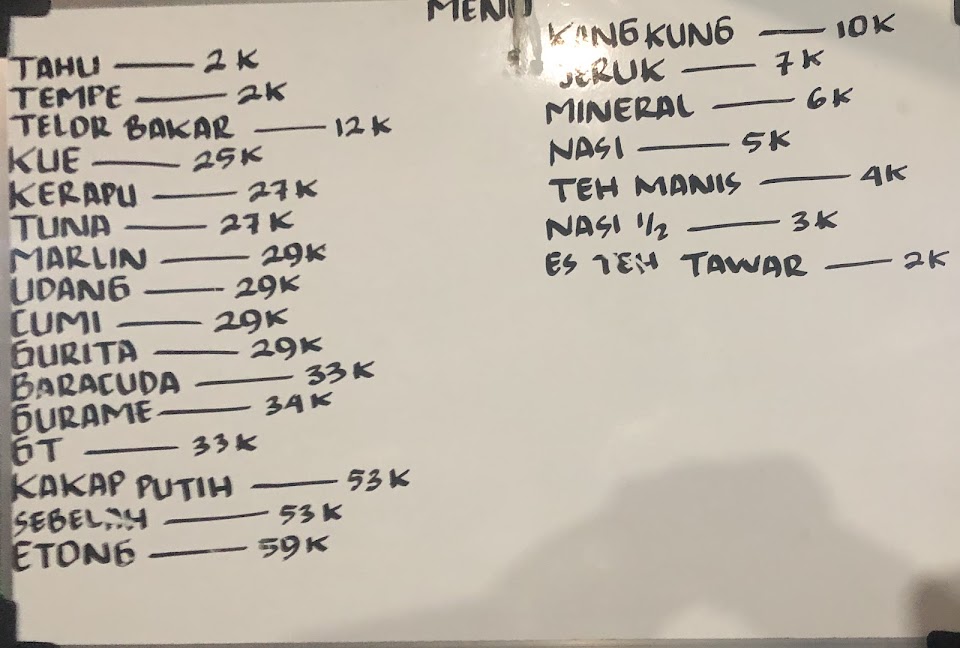 MENU
TAHU — 2K
TEMPE — 2K
TELOR BAKAR — 12K
KUE — 25K
KERAPU — 27K
TUNA — 27K
MARLIN — 29K
UDANG — 29K
CUMI — 29K
GURITA — 29K
BARACUDA — 33K
GURAME — 34K
GT — 33K
KAKAP PUTIH — 53K
SEBELAH — 53K
ETONG — 59K
KANGKUNG — 10K
JERUK — 7K
MINERAL — 6K
NASI — 5K
TEH MANIS — 4K
NASI 1/2 — 3K
ES TEH TAWAR — 2K